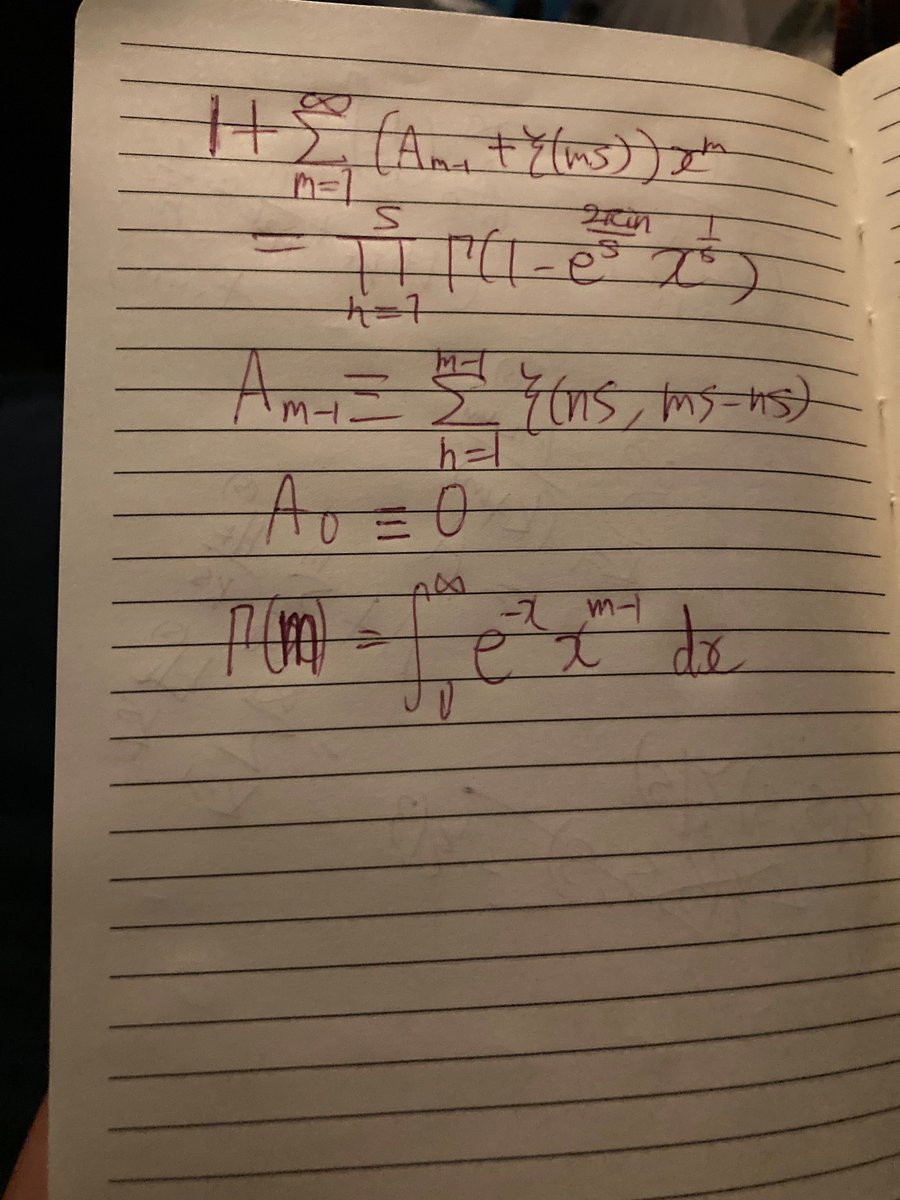 1+∑_{m=1}^{∞} (A_{m-1} + ζ(ms)) x^m
= ∏_{n=1}^{s} Γ(1 - e^{\frac{2πin}{s}} x^{\frac{1}{s}})
A_{m-1} ≡ ∑_{n=1}^{m-1} ζ(ns, ms-ns)
A_0 ≡ 0
Γ(m) = ∫_0^∞ e^{-x} x^{m-1} dx